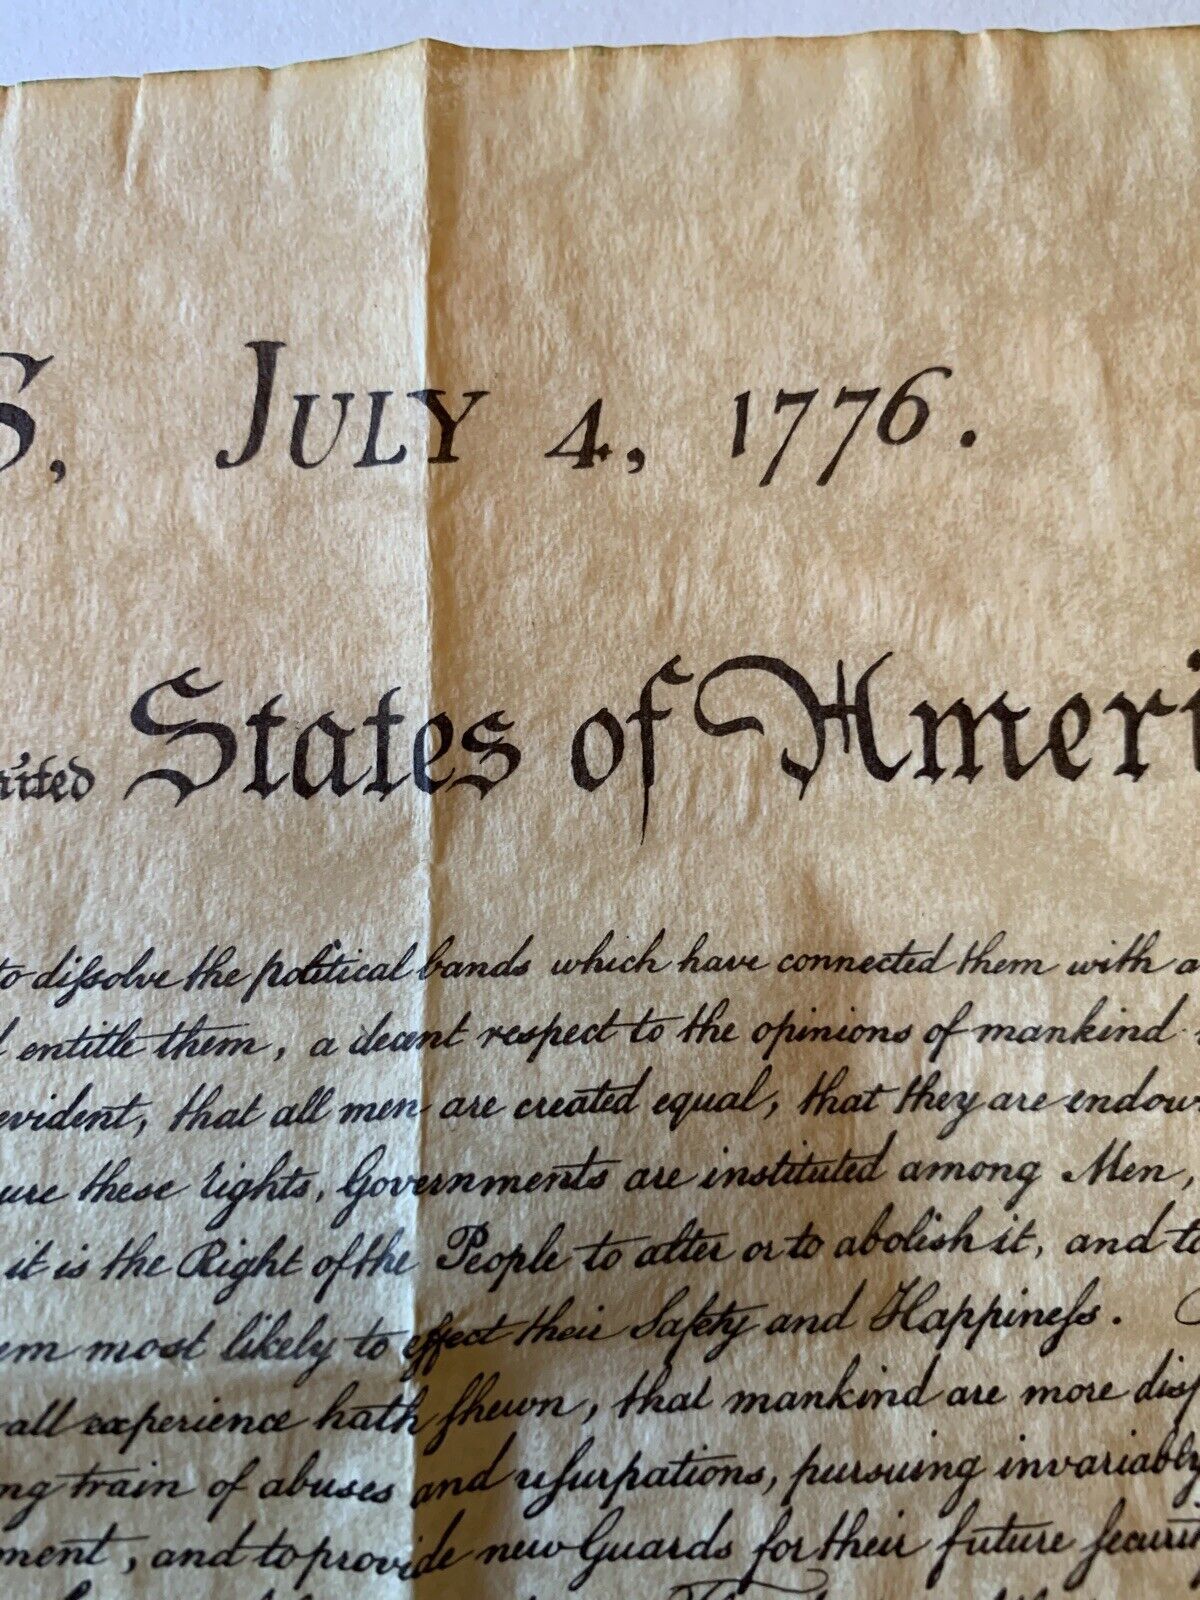 S, JULY 4, 1776.
States of Ameri
to dissolve the political bands which have connected them with a
entitle them, a decent respect to the opinions of mankind
evident, that all men are created equal, that they are endow
ure these rights, Governments are instituted among Men,
it is the Right of the People to alter or to abolish it, and to
em most likely to effect their Safety and Happiness.
all experience hath shewn, that mankind are more disp
ng train of abuses and usurpations, pursuing invariably
ment, and to provide new Guards for their future securit